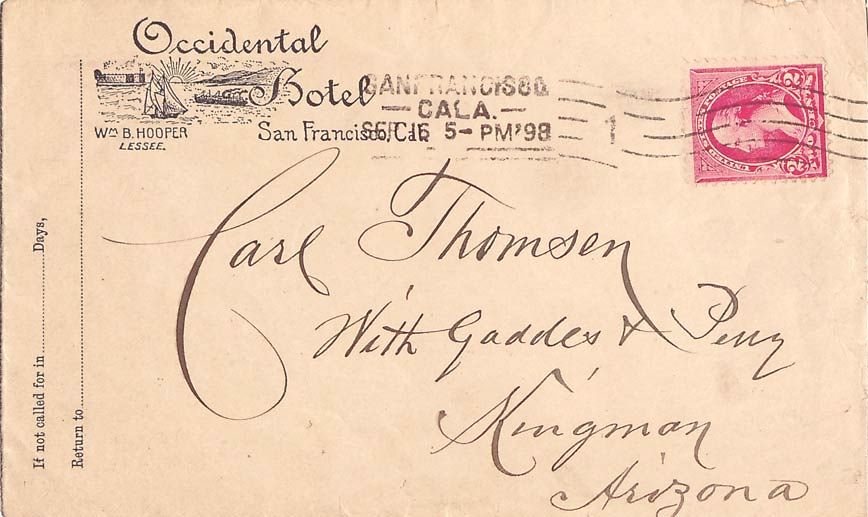 Occidental
Hotel
San Francisco, Cal.
Wm B. HOOPER
LESSEE.
SAN FRANCISCO
CALA.
SEP 16 5-PM '93
1
Carl Thomsen
With Gaddes &
Kingman
Arizona
If not called for in Days,
Return to